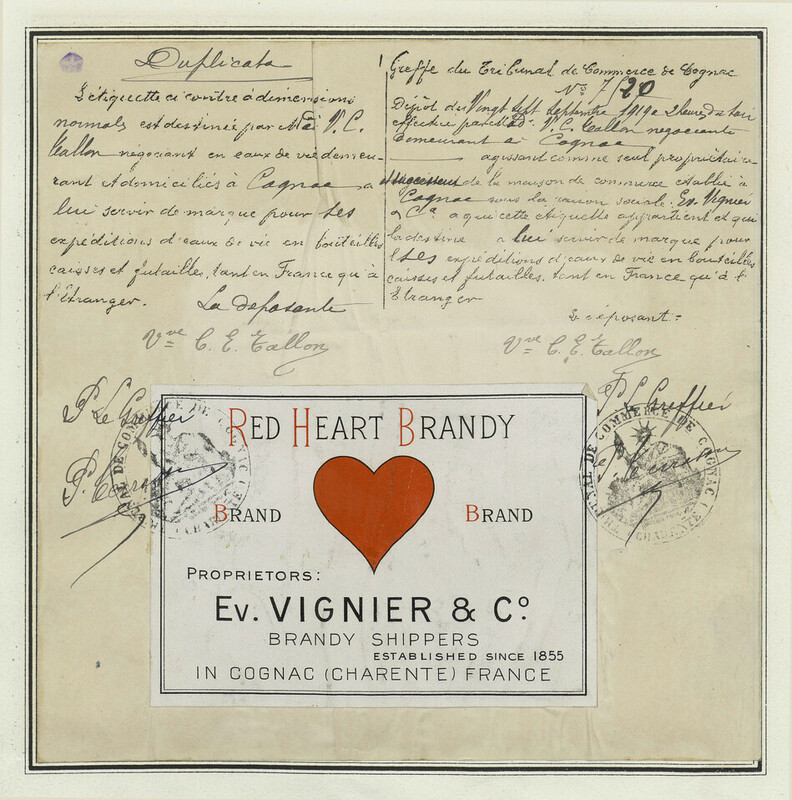 Duplicata
L'étiquette ci contre à dimensions
normales est destinée par V. C.
Tallon négociant en eaux de vie demeu-
rant et domiciliés à Cognac a
lui servir de marque pour ses
expéditions d'eaux de vie en bouteilles
caisses et futailles, tant en France qu'à
l'Etranger.
La déposante
Vve C. E. Tallon
P. Le Greffier
Greffe du Tribunal de Commerce de Cognac
No 7/20
Dépôt du Vingt Sept Septembre 1919 à 2 heures du soir
effectué par V. C. Tallon négociante
demeurant à Cognac
agissant comme seul propriétaire
successeur de la maison de commerce établie à
Cognac sous la raison sociale: Ev. Vignier
& Cie a qui cette étiquette appartient et qui
la destine a lui servir de marque pour
ses expéditions d'eaux de vie en bouteilles
caisses et futailles, tant en France qu'à l'
Etranger
Le déposant =
Vve C. E. Tallon
P. Le Greffier
TRIBUNAL DE COMMERCE DE COGNAC (CHARENTE)
RED HEART BRANDY
BRAND BRAND
PROPRIETORS:
EV. VIGNIER & Co.
BRANDY SHIPPERS
ESTABLISHED SINCE 1855
IN COGNAC (CHARENTE) FRANCE